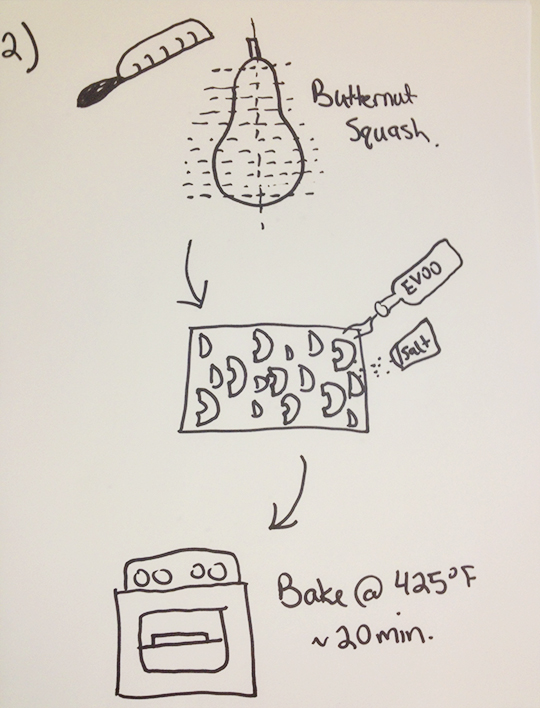 2)
Butternut
Squash.
EVOO
Salt
Bake @ 425°F
~20min.